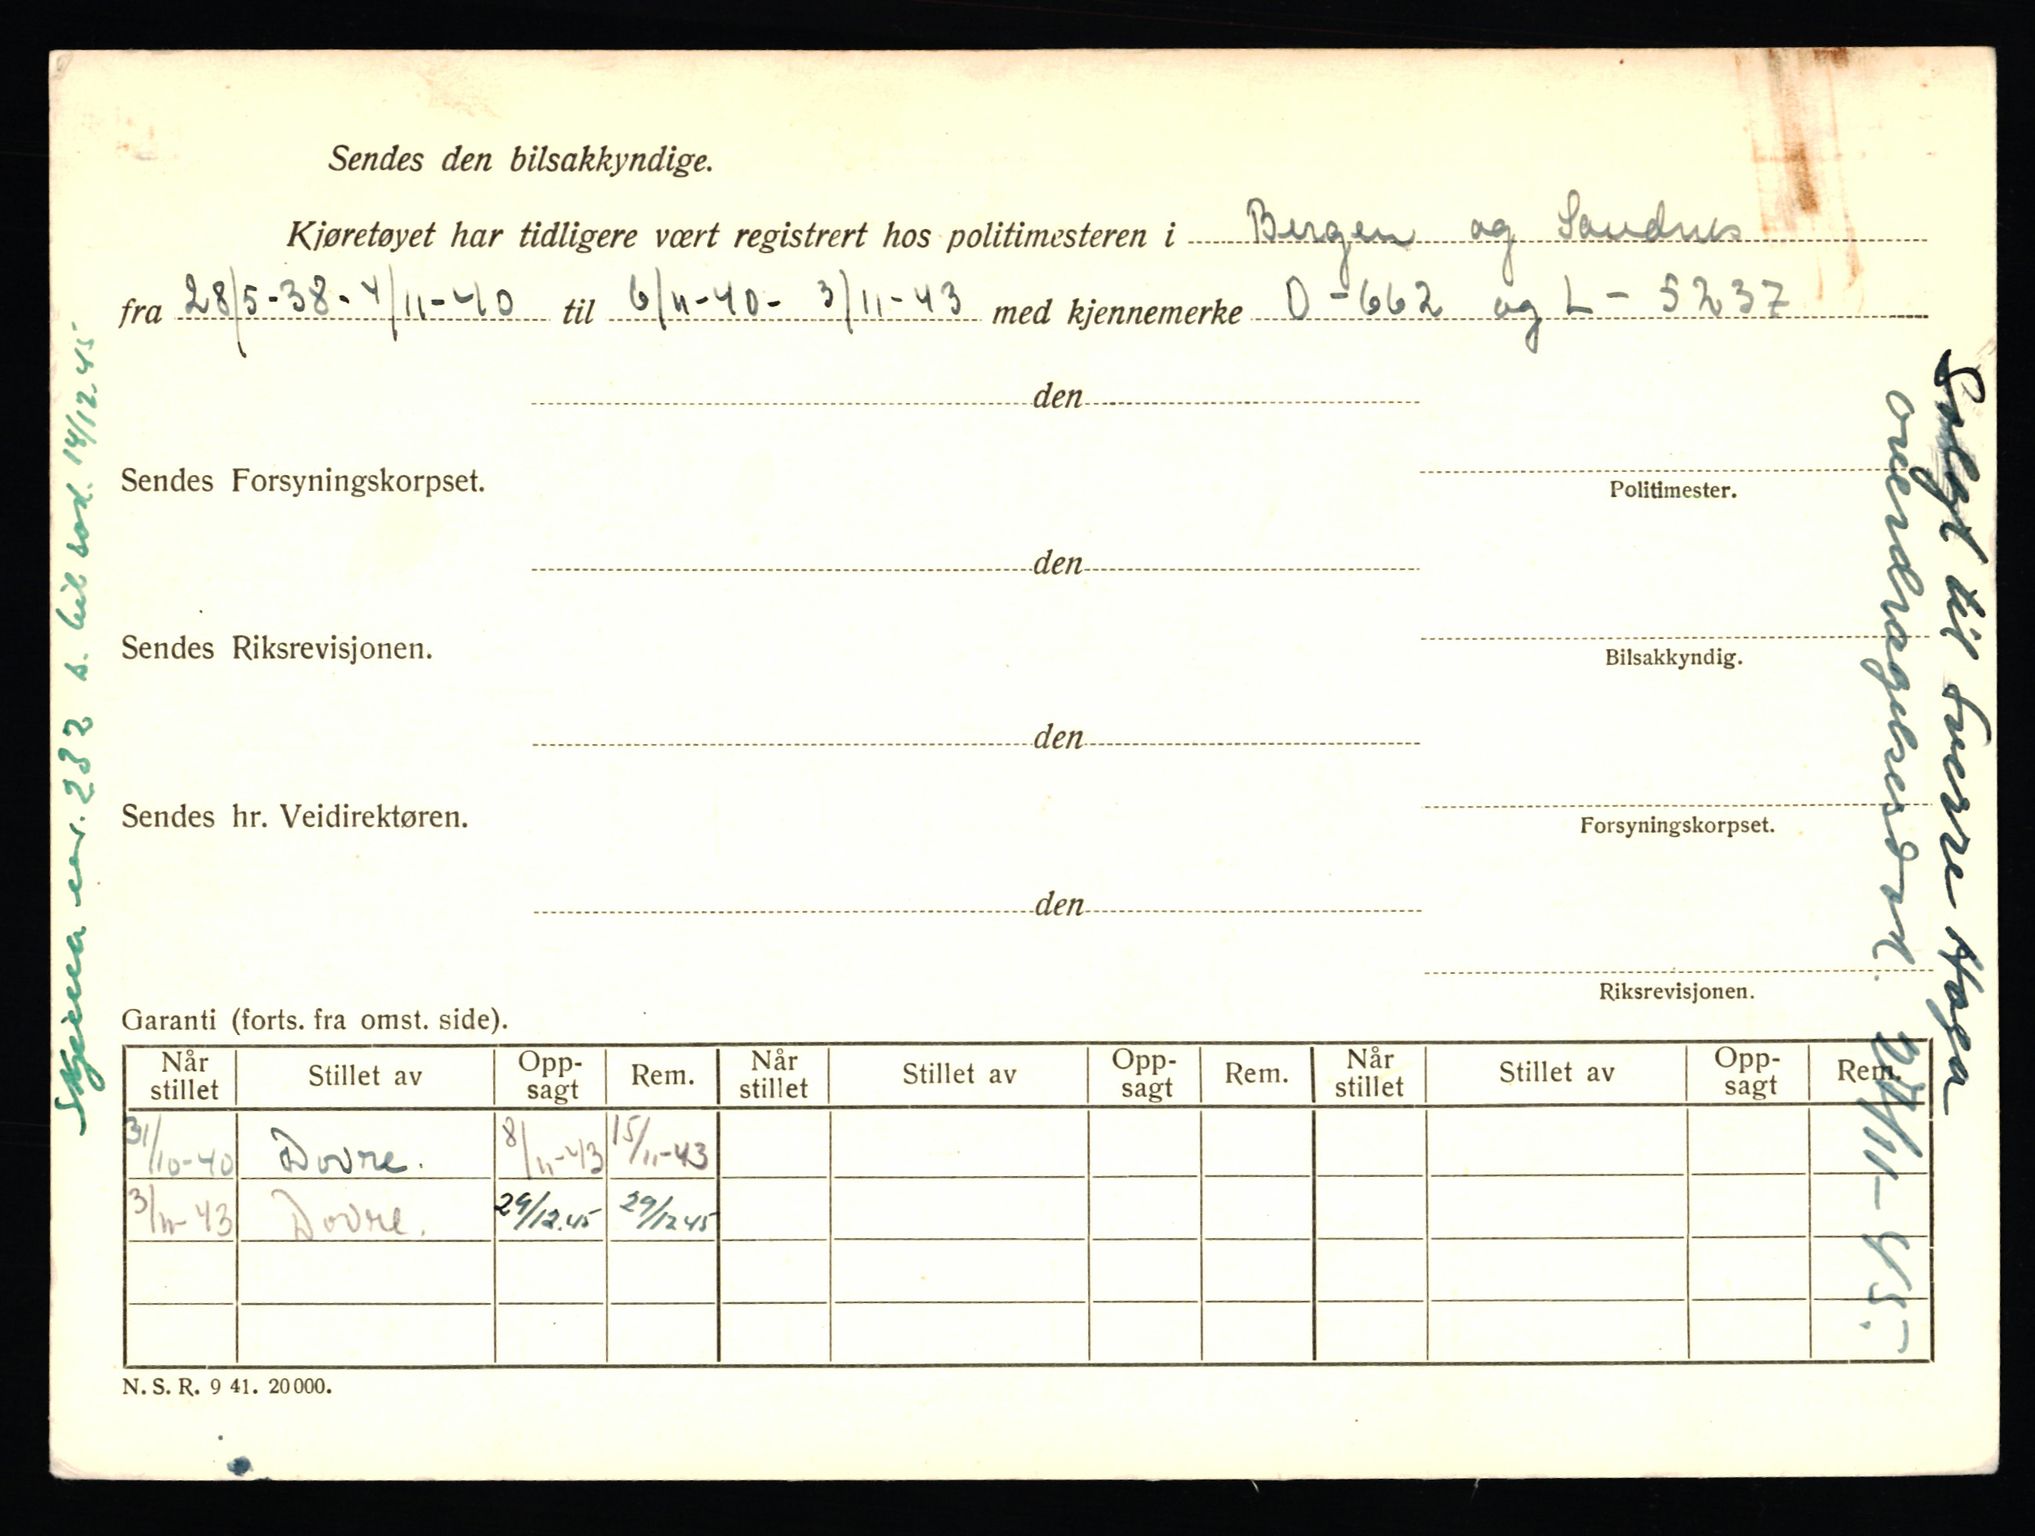 Sendes den bilsakkyndige.
Kjøretøyet har tidligere vært registrert hos politimesteren i Bergen og Sandnes
fra 28/5-38-4/11-40 til 6/11-40- 3/11-43 med kjennemerke O-662 og L-5237
den
Sendes Forsyningskorpset.
Politimester.
den
Sendes Riksrevisjonen.
Bilsakkyndig.
den
Sendes hr. Veidirektøren.
Forsyningskorpset.
den
Riksrevisjonen.
Garanti (forts. fra omst. side).
Når stillet Stillet av Opp-sagt Rem. Når stillet Stillet av Opp-sagt Rem. Når stillet Stillet av Opp-sagt Rem.
31/10-40 Dovre. 8/11-43 15/11-43
3/11-43 Dovre. 29/12.45 29/12 45
N. S. R. 9 41. 20 000.
nr. 232 s. bil 14/12.45
Solgt til Sverre Haga
overdragelsesdok. /11-45.